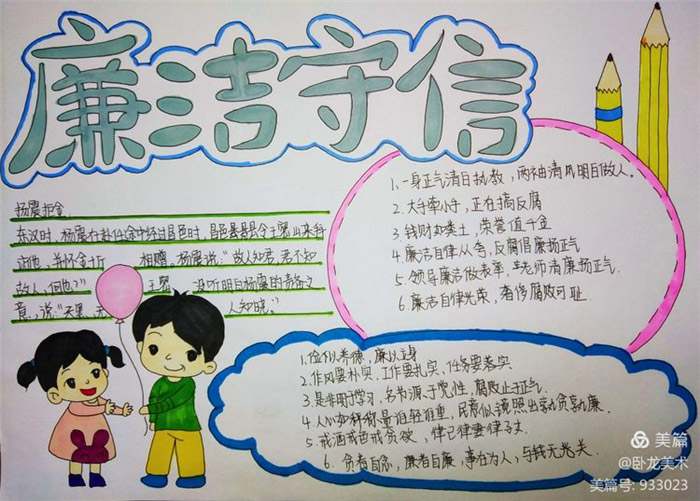 廉洁守信
杨震拒金
东汉时,杨震在赴任途中经过昌邑时,昌邑县县令王密出来拜
访他,并怀金十斤 相赠,杨震说:"故人知君,君不知
故人,何也?" 王密 没听明白杨震的责备之
意,说:"天黑,无 人知晓."
1.一身正气清白执教,两袖清风明白做人。
2.大手牵小手,正在搞反腐
3.钱财如粪土,荣誉值千金
4.廉洁自律从今,反腐倡廉扬正气
5.领导廉洁做表率,老师清廉扬正气.
6.廉洁自律光荣,奢侈腐败可耻.
1.俭以养德,廉以立身
2.作风要朴实,工作要扎实,任务要落实
3.是非明于学习,名节源于党性,腐败止于正气.
4.人心如秤称量谁轻谁重,民意似镜照出孰贪孰廉.
5.戒酒戒色戒贪欲,律己律妻律子女
6.贪者自念,廉者自廉,事在为人,与钱无关.
美篇
@卧龙美术
美篇号: 933023